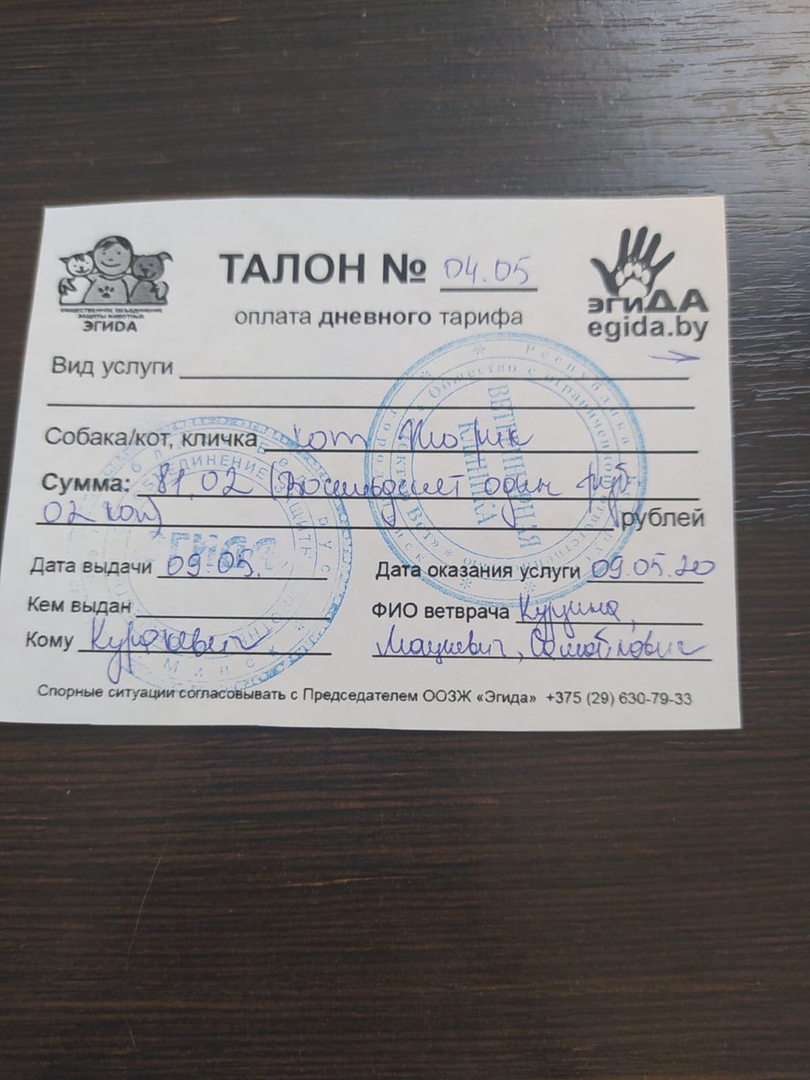 ТАЛОН № 04.05
оплата дневного тарифа
ОБЩЕСТВЕННОЕ ОБЪЕДИНЕНИЕ
ЗАЩИТЫ ЖИВОТНЫХ
ЭГИДА
эгиДА
egida.by
Вид услуги
Собака/кот, кличка кот
Сумма: 81,02 (восемьдесят один руб
02 коп) рублей
Дата выдачи 09.05.
Дата оказания услуги 09.05.20
Кем выдан
ФИО ветврача
Кому
Мацкевич, Самойлович
Спорные ситуации согласовывать с Председателем ООЗЖ «Эгида» +375 (29) 630-79-33
ВЕТЕРИНАРНАЯ
КЛИНИКА